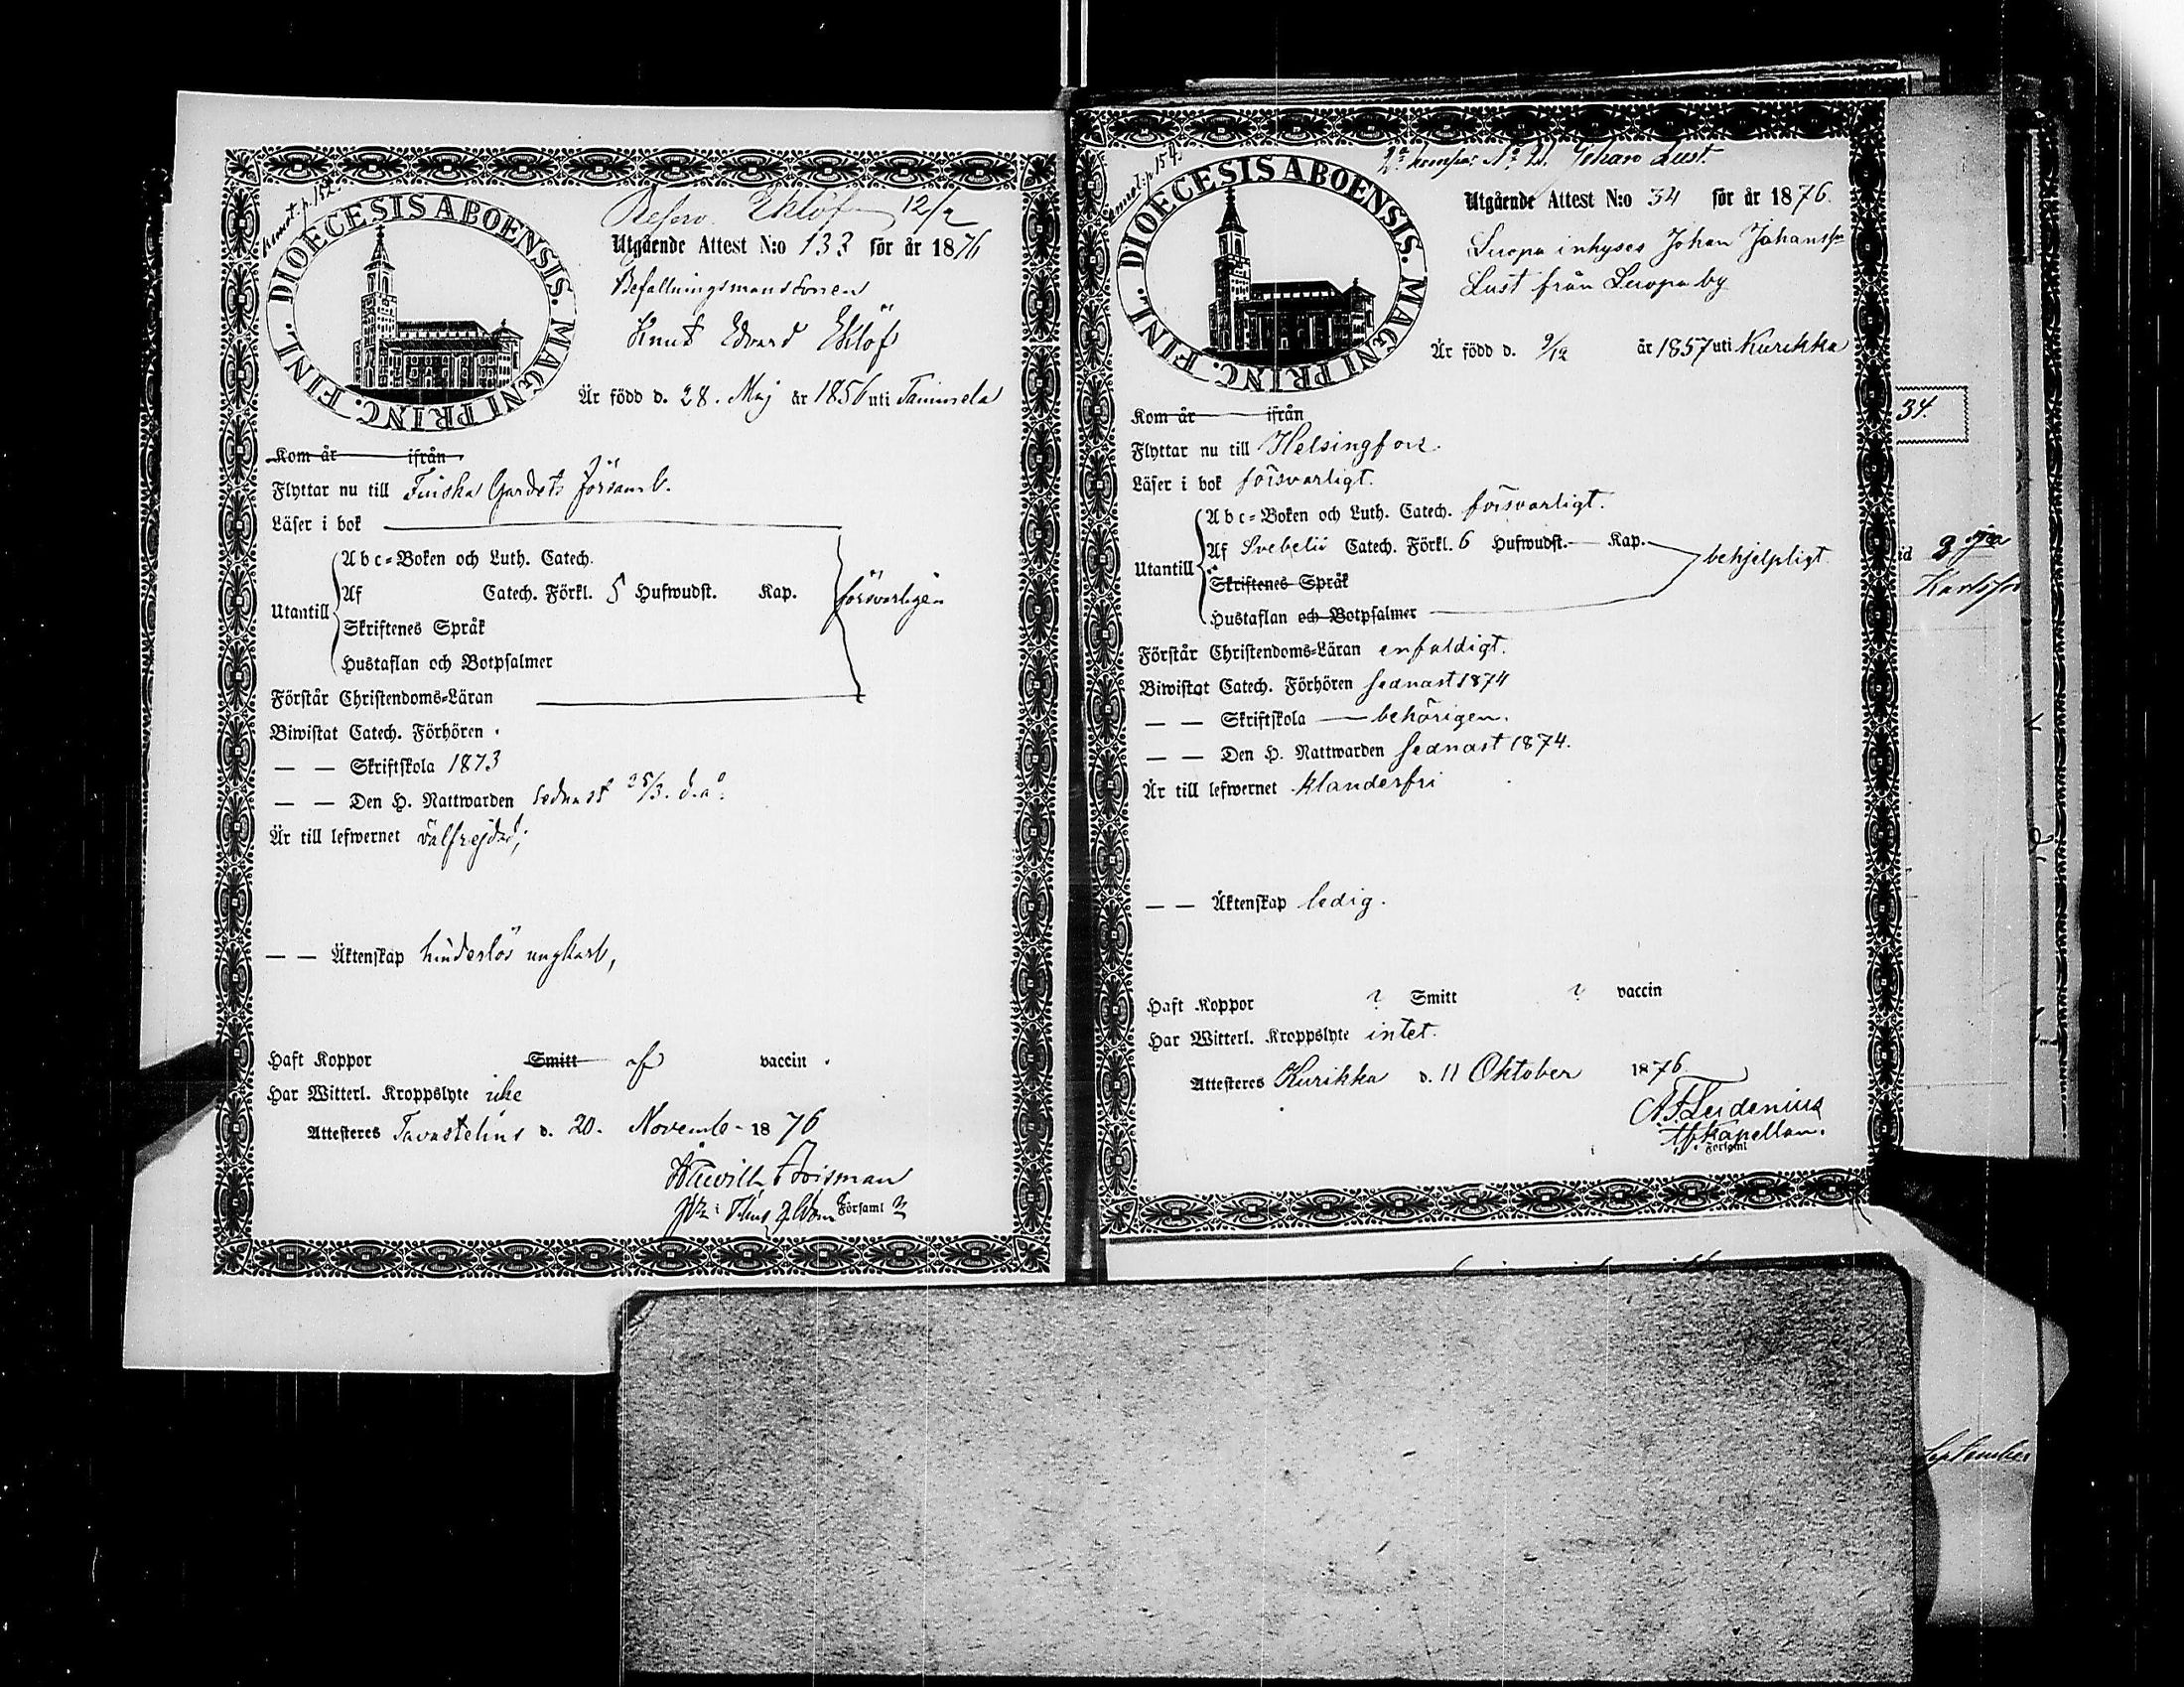 DIOECESIS ABOENSIS. MAGNI PRINC. FINL.
Reserv. Eklöf 12/2
Utgående Attest N:o 133 för år 1876
Befallningsmanssonen
Knut Edvard Eklöf
Är född d. 28. Maj år 1856 uti Tammela
Kom år ifrån
Flyttar nu till Finska Gardets Församl.
Läser i bok
Abc-Boken och Luth. Catech.
Af Catech. Förkl. 5 Hufwudst. Kap.
försvarligen
Utantill
Skriftenes Språk
Hustaflan och Botpsalmer
Förstår Christendoms-Läran
Biwistat Catech. Förhören
— — Skriftskola 1873
— — Den H. Nattwarden sednast 25/3. d.å.
Är till lefwernet välfrejdad;
— — Äktenskap hinderlös ungkarl,
Haft Koppor Smitt af vaccin
Har Witterl. Kroppslyte icke
Attesteres Tavastehus d. 20. Novemb. 1876
Frisman
Församl
DIOECESIS ABOENSIS. MAGNI PRINC. FINL.
p 154.
2a komp: No 21. Johan Lust.
Utgående Attest N:o 34 för år 1876.
Luopa inhyses Johan Johansson
Lust från Luopa by
Är född d. 9/12 år 1857 uti Kurikka
Kom år ifrån
Flyttar nu till Helsingfors.
Läser i bok försvarligt.
Abc-Boken och Luth. Catech. försvarligt.
Af Svebelii Catech. Förkl. 6 Hufwudst. — Kap.
behjelpligt
Utantill
Skriftenes Språk
Hustaflan och Botpsalmer
Förstår Christendoms-Läran enfaldigt.
Biwistat Catech. Förhören sednast 1874
— — Skriftskola — behörigen.
— — Den H. Nattwarden sednast 1874.
Är till lefwernet klanderfri
— — Äktenskap ledig.
Haft Koppor ? Smitt ? vaccin
Har Witterl. Kroppslyte intet.
Attesteres Kurikka d. 11 Oktober 1876.
A.F. Leidenius
Kapellan.
Församl
34.
id
Karlsson
September